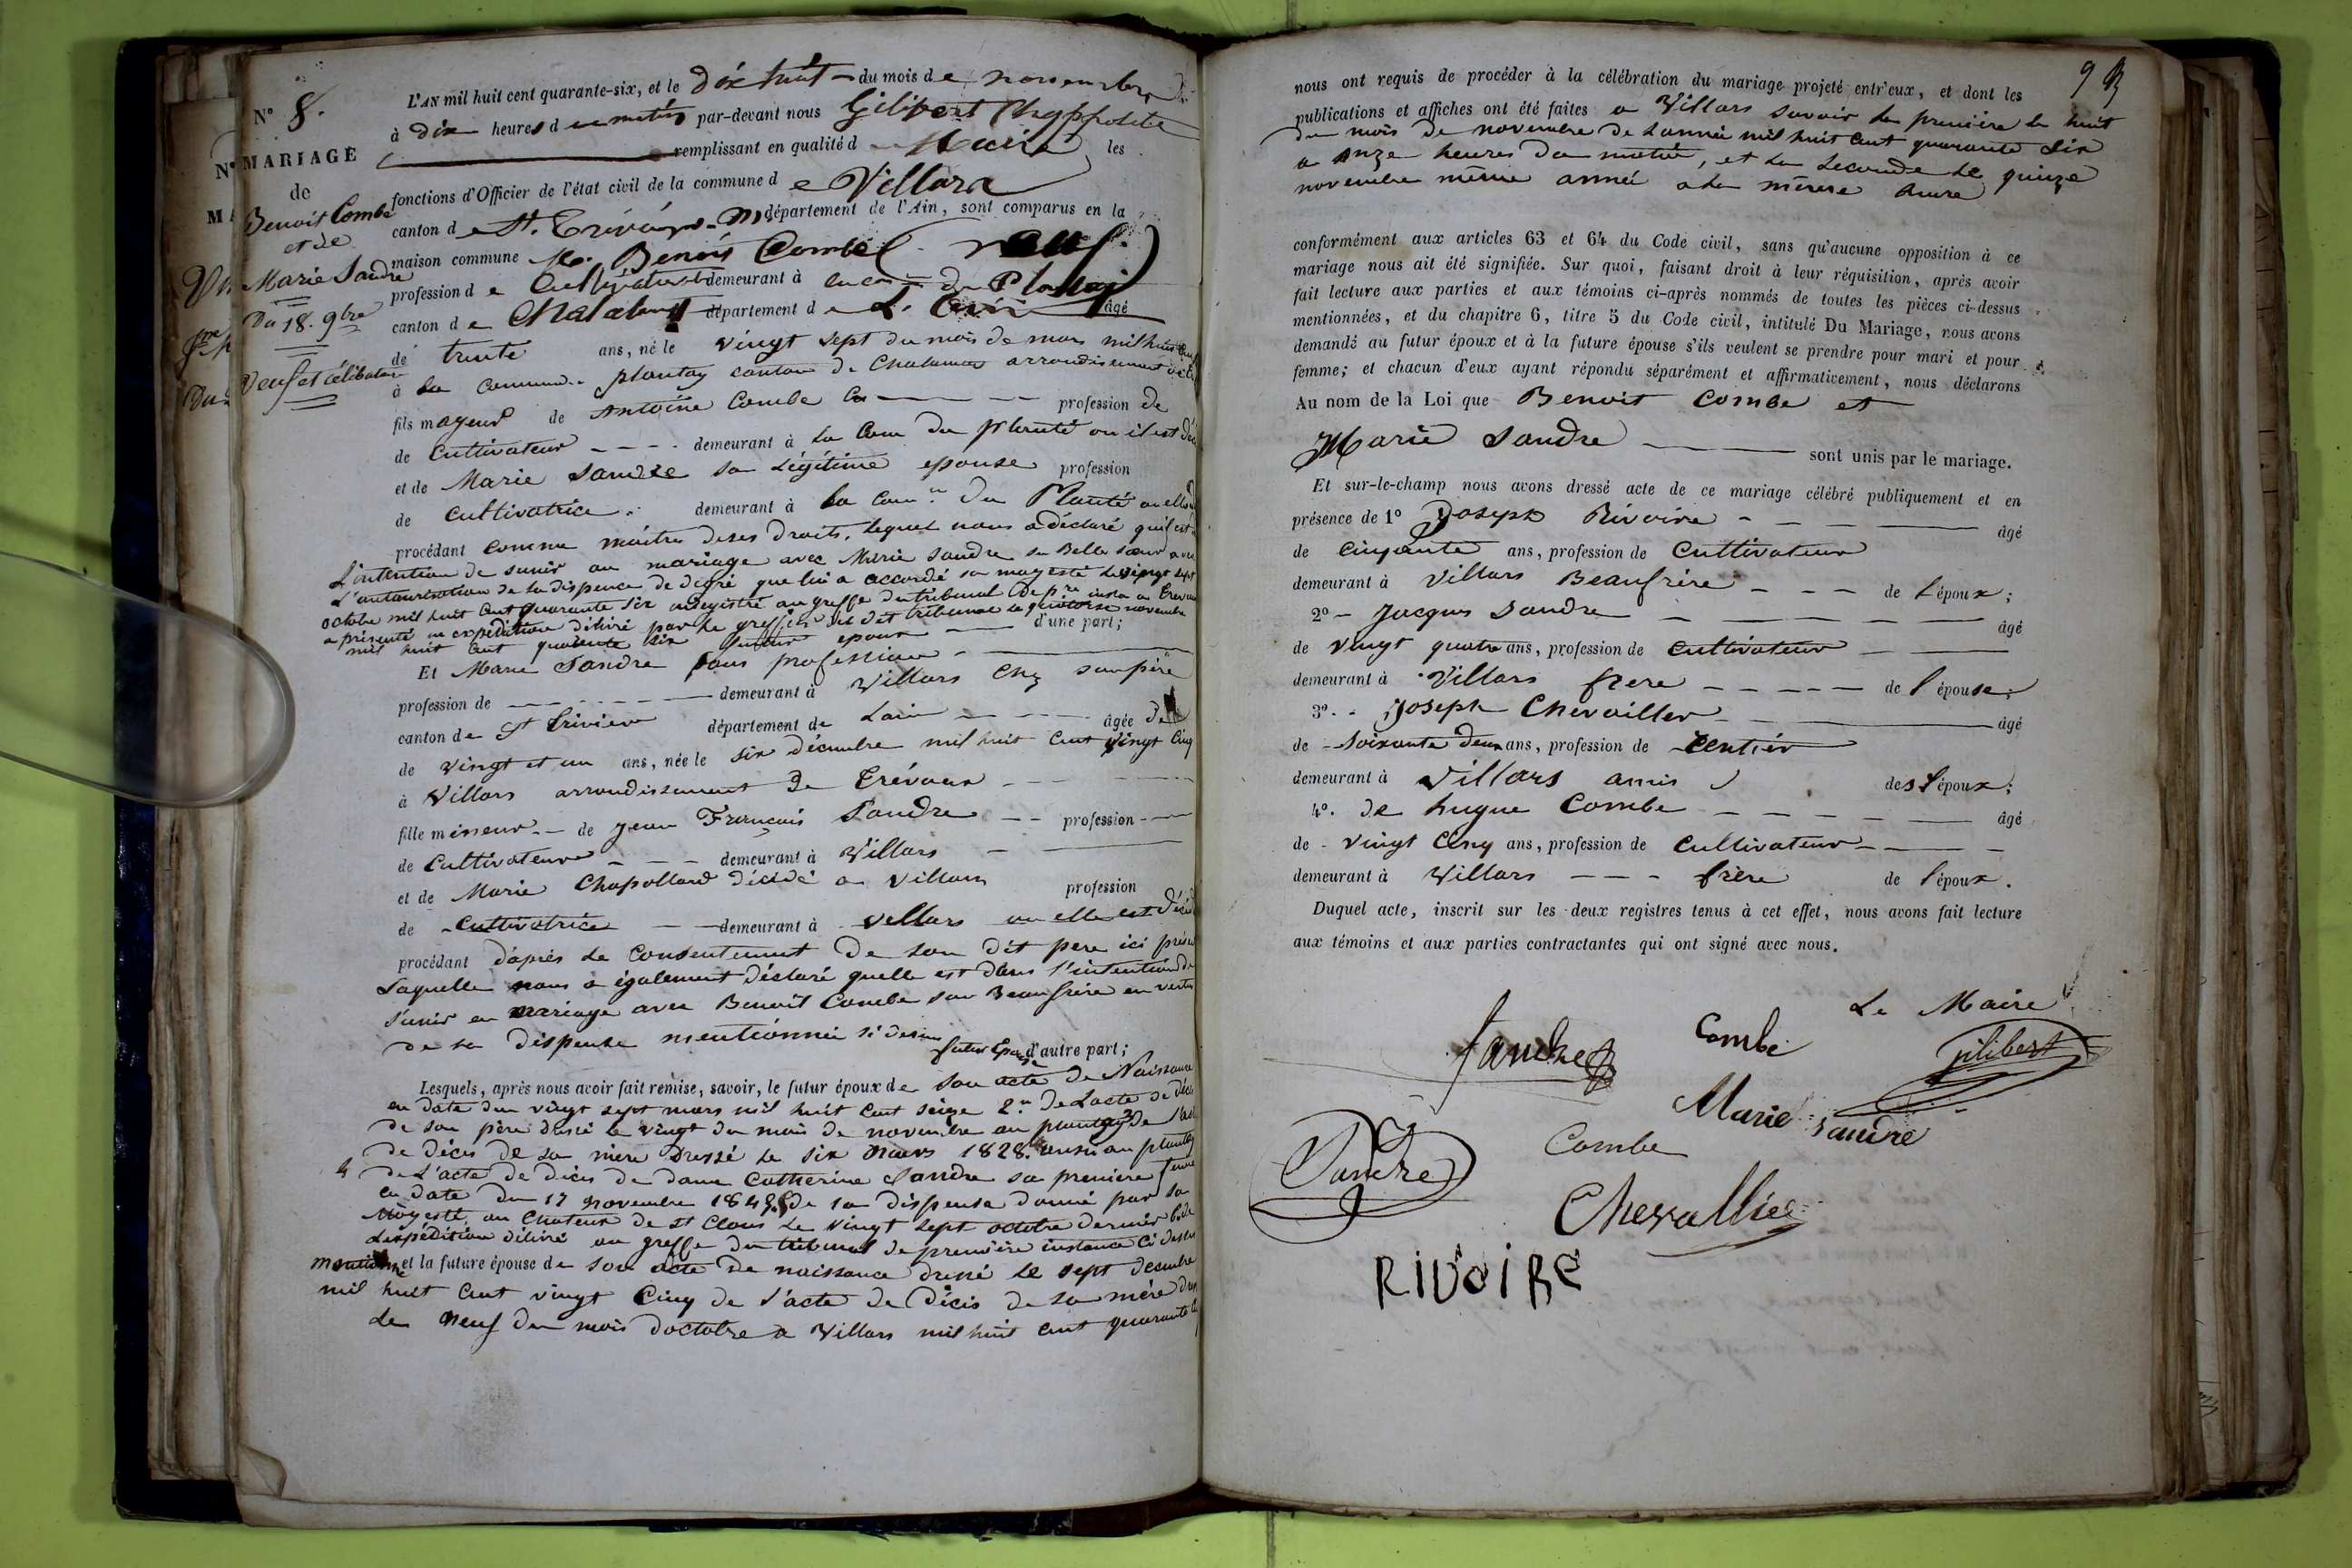 N° 8.
MARIAGE
de
Benoit Combe
et de
Marie Sandre
Du 18. 9bre
Veuf et célibataire
L'AN mil huit cent quarante-six, et le dix huit du mois de novembre
à dix heures du matin par-devant nous Gilibert Hyppolite
remplissant en qualité de Maire les
fonctions d'Officier de l'état civil de la commune de Villars
canton de St. Trivier département de l'Ain, sont comparus en la
maison commune Benoit Combe veuf
profession de Cultivateur demeurant à du Plantay
canton de Chalamont département de L'Ain âgé
de trente ans, né le vingt sept du mois de mars mil huit cent
à la commune plantay canton de Chalamont arrondissement
fils mageur de Antoine Combe profession de
de Cultivateur demeurant à la Com du planté ou il est
et de Marie Sandre sa légitime epouse profession
de cultivatrice demeurant à la Com du Planté ou elle
procédant comme maitre de ses droits, lequel nous a déclaré qu'il est
L'intention de sunir au mariage avec Marie Sandre sa Belle sœur
L'autaurisation de la dispence de degré que lui a accordé sa magesté le vingt sept
octobre mil huit Cent quarante six enregistré au greffe du tribunal de pre
a présenté une expédition délivré par le greffier du dit tribunal le quatorse novembre
mil huit Cent quarante six futur epoux d'une part;
Et Marie Sandre sans profession
profession de demeurant à Villars chez son père
canton de St Trivier département de Lain âgée de
de vingt et un ans, née le six décembre mil huit Cent vingt Cinq
à Villars arrondissement de Trévoux
fille mineur de Jean François Sandre profession
de Cultivateur demeurant à Villars
et de Marie Chapolard décédé a Villars profession
de Cultivatrice demeurant à Villars ou elle est
procédant d'après le Consentement de son dit pere ici
Laquelle nous a également déclaré quelle est dans l'intention de
s'unir en mariage avec Benoit Combe son Beaufrère en vertu
de la dispense mentionnée si dessus
futur Epouse d'autre part;
Lesquels, après nous avoir fait remise, savoir, le futur époux de son acte de Naissance
en date du vingt sept mars mil huit Cent seize 2° De Lacte de
de son père dressé le vingt du mois de novembre au plantay 3° de
de décès de sa mère dressé le six mars 1828. aussi au plantay
4 de L'acte de décès de dame Catherine Sandre sa première
en date du 17 novembre de la dispense donné par sa
Magesté au Chateux de St Clous Le vingt sept octobre dernier
L'expédition délivré au greffe du tribunal de première instance Ci dessus
et la future épouse de son acte de naissance dressé le sept décembre
mil huit Cent vingt Cinq de l'acte de Décès de sa mère
Le neuf du mois d'octobre a Villars mil huit cent quarante
nous ont requis de procéder à la célébration du mariage projeté entr'eux, et dont les
publications et affiches ont été faites a Villars savoir la première le huit
du mois de novembre de Lannée mil huit Cent quarante six
a onze heures du matin, et la seconde le quinze
novembre même année a la même heure
conformément aux articles 63 et 64 du Code civil, sans qu'aucune opposition à ce
mariage nous ait été signifiée. Sur quoi, faisant droit à leur réquisition, après avoir
fait lecture aux parties et aux témoins ci-après nommés de toutes les pièces ci-dessus
mentionnées, et du chapitre 6, titre 5 du Code civil, intitulé Du Mariage, nous avons
demandé au futur époux et à la future épouse s'ils veulent se prendre pour mari et pour
femme; et chacun d'eux ayant répondu séparément et affirmativement, nous déclarons
Au nom de la Loi que Benoit Combe et
Marie Sandre sont unis par le mariage.
Et sur-le-champ nous avons dressé acte de ce mariage célébré publiquement et en
présence de 1° Joseph Rivoire âgé
de cinqante ans, profession de Cultivateur
demeurant à Villars Beaufrère de l'époux;
2° Jacques Sandre âgé
de vingt quatre ans, profession de Cultivateur
demeurant à Villars frere de l'épouse;
3°. Joseph Chevailler âgé
de soixante deux ans, profession de Rentier
demeurant à Villars amis des l'époux;
4°. de hugue Combe âgé
de vingt Cinq ans, profession de Cultivateur
demeurant à Villars frère de l'époux.
Duquel acte, inscrit sur les deux registres tenus à cet effet, nous avons fait lecture
aux témoins et aux parties contractantes qui ont signé avec nous.
Le Maire
Sandre Combe Gilibert
Marie Sandre
Sandre Combe
Chevallier
RIVOIRE